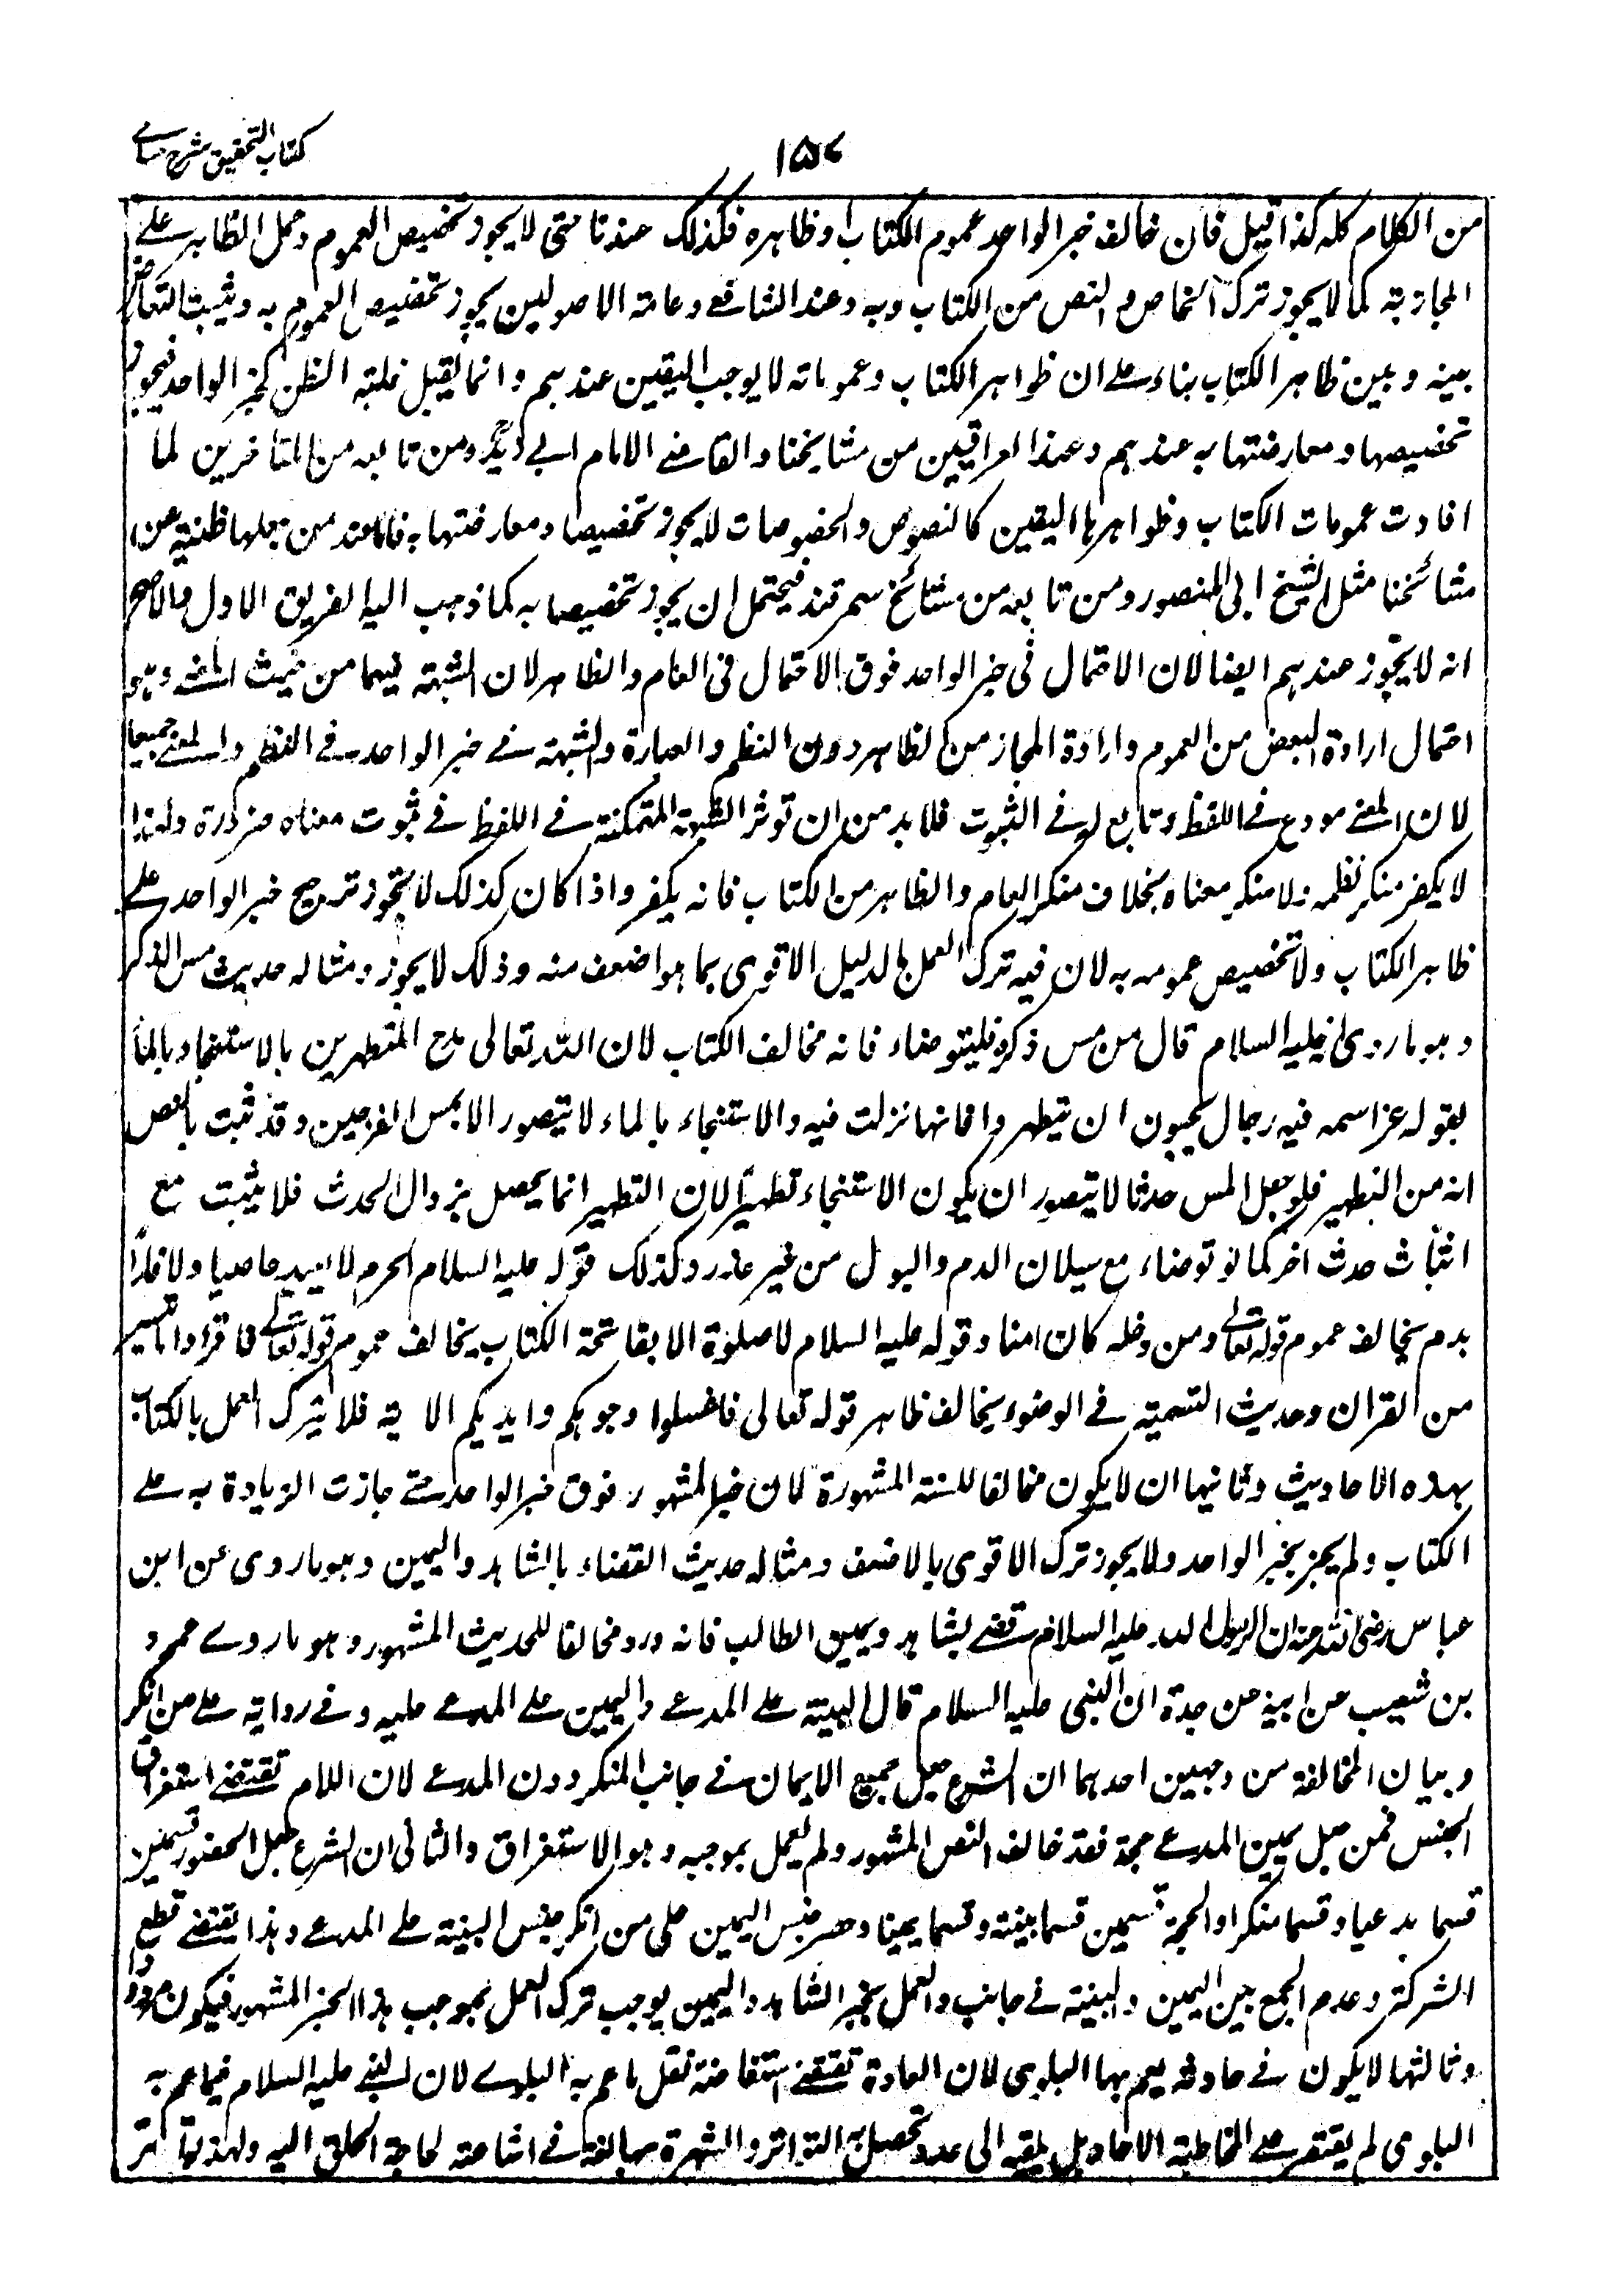 كتاب التحقيق شرح حسامے
۱۵۷
من الكلام كله كذا قيل فان خالف خبر الواحد عموم الكتاب او ظاهره فكذلك عندنا حتى لا يجوز تخصيص العموم وحمل الظاهر علے
المجاز به كما لا يجوز ترك الخاص والنص من الكتاب وبه وعند الشافعے وعامة الاصوليين يجوز تخصيص العموم به ويثبت التعارض
بينه وبين ظاهر الكتاب بناء علے ان ظواهر الكتاب وعموماته لا يوجب اليقين عندهم وانما يقبل غلبة الظن كخبر الواحد فيجوز
تخصيصها ومعارضتها به عندهم وعند العراقيين من مشايخنا والقاضے الامام ابے زيد ومن تابعه من المتاخرين لما
افادت عمومات الكتاب وظواهرها اليقين كالنصوص والخصوصات لا يجوز تخصيصها ومعارضتها به فاما عند من جعلها ظنية من
مشائخنا مثل الشيخ ابى المنصور ومن تابعه من مشائخ سمرقند فيحتمل ان يجوز تخصيصها به كما ذهب اليه الفريق الاول والاصح
انه لا يجوز عندهم ايضا لان الاحتمال فى خبر الواحد فوق الاحتمال فى العام والظاهر لان الشبهة فيهما من حيث المعنے وهو
احتمال ارادة البعض من العموم وارادة المجاز من الظاهر دون النظم والعبارة والشبهة فے خبر الواحد فے النظم والمعنے جميعا
لان المعنے مودع فے اللفظ وتابع له فے الثبوت فلا بد من ان توثر الشبهة المتمكنة فے اللفظ فے ثبوت معناه ضرورة ولهذا
لا يكفر منكر نظمه ولا منكر معناه بخلاف منكر العام والظاهر من الكتاب فانه يكفر واذا كان كذلك لا يجوز ترجيح خبر الواحد علے
ظاهر الكتاب ولا تخصيص عمومه به لان فيه ترك العمل بالدليل الاقوى بما هو اضعف منه وذلك لا يجوز ومثاله حديث مس الذكر
وهو ما روى انه عليه السلام قال من مس ذكره فليتوضاء فانه مخالف الكتاب لان الله تعالى مدح المتطهرين بالاستنجاء بالماء
بقوله عز اسمه فيه رجال يحبون ان يتطهروا فانها نزلت فيه والاستنجاء بالماء لا يتصور الا بمس الفرجين وقد ثبت بالنص
انه من التطهير فلو جعل المس حدثا لا يتصور ان يكون الاستنجاء تطهيرا لان التطهير انما يحصل بزوال الحدث فلا يثبت مع
اثبات حدث اخر كما لو توضاء مع سيلان الدم والبول من غير عذر وكذلك قوله عليه السلام الحرم لا يعيذ عاصيا ولا فارا
بدم يخالف عموم قوله تعالے ومن دخله كان امنا وقوله عليه السلام لا صلوة الا بفاتحة الكتاب يخالف عموم قوله تعالے فاقرءوا ما تيسر
من القران وحديث التسمية فے الوضوء يخالف ظاهر قوله تعالى فاغسلوا وجوهكم وايديكم الاية فلا يترك العمل بالكتاب
بهذه الاحاديث وثانيها ان لا يكون مخالفا للسنة المشهورة لان خبر المشهور فوق خبر الواحد حتے جازت الزيادة به علے
الكتاب ولم يجز بخبر الواحد ولا يجوز ترك الاقوى بالاضعف ومثاله حديث القضاء بالشاهد واليمين وهو ما روى عن ابن
عباس رضى الله عنه ان الرسول الله عليه السلام قضے بشاهد ويمين الطالب فانه ورد مخالفا للحديث المشهور وهو ما روے عمرو
بن شعيب عن ابيه عن جده ان النبى عليه السلام قال البينة علے المدعے واليمين علے المدعے عليه وفے رواية علے من انكر
وبيان المخالفة من وجهين احدهما ان الشرع جعل جميع الايمان فے جانب المنكر دون المدعے لان اللام تقتضے استغراق
الجنس فمن جعل يمين المدعے حجة فقد خالف النص المشهور ولم يعمل بموجبه وهو الاستغراق والثانى ان الشرع جعل الخصوم قسمين
قسما مدعيا وقسما منكرا والحجة قسمين قسما بينة وقسما يمينا وحصر جنس اليمين على من انكر وجنس البينة علے المدعے وهذا يقتضے قطع
الشركة وعدم الجمع بين اليمين والبينة فے جانب والعمل بخبر الشاهد واليمين يوجب ترك العمل بموجب هذا الخبر المشهور فيكون مردودا
وثالثها لا يكون فے حادثة يعم بها البلوى لان العادة تقتضے استفاضة نقل ما عم به البلوے لان النبے عليه السلام فيما عم به
البلوى لم يقتصر علے المخاطبة الاحاد بل يلقيه الى عدد تحصل به التواتر والشهرة مبالغة فے اشاعته لحاجة الخلق اليه ولهذا تواتر